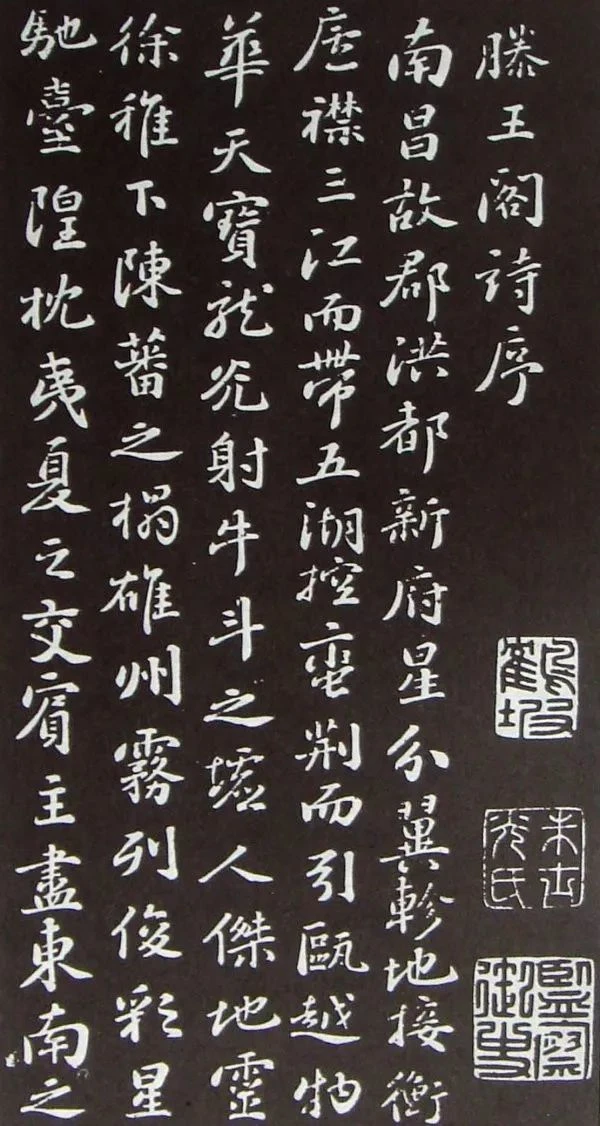 滕王閣詩序
南昌故郡洪都新府星分翼軫地接衡
廬襟三江而帶五湖控蛮荊而引甌越物
華天寶龍光射牛斗之墟人傑地靈
徐稚下陳蕃之榻雄州霧列俊彩星
馳臺隍枕夷夏之交賓主盡東南之
監察御史